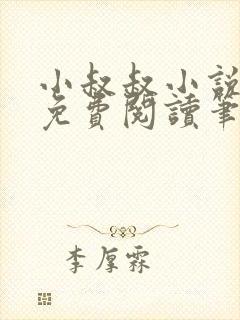 小叔叔小說
免費閱讀筆
李厚霖